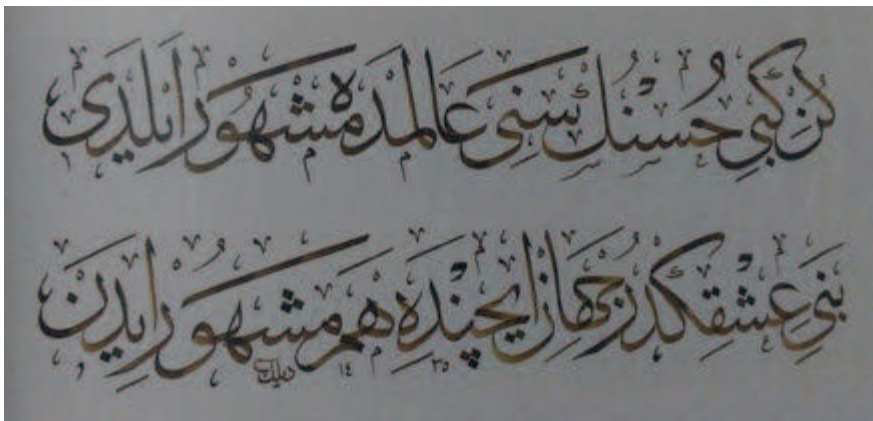 كُن كبى حُسنُك سنى عالمده مشهور ايلدى
بنى عشقكدر جهان ايچنده هم مشهور ايدن
١٤ ٣٥